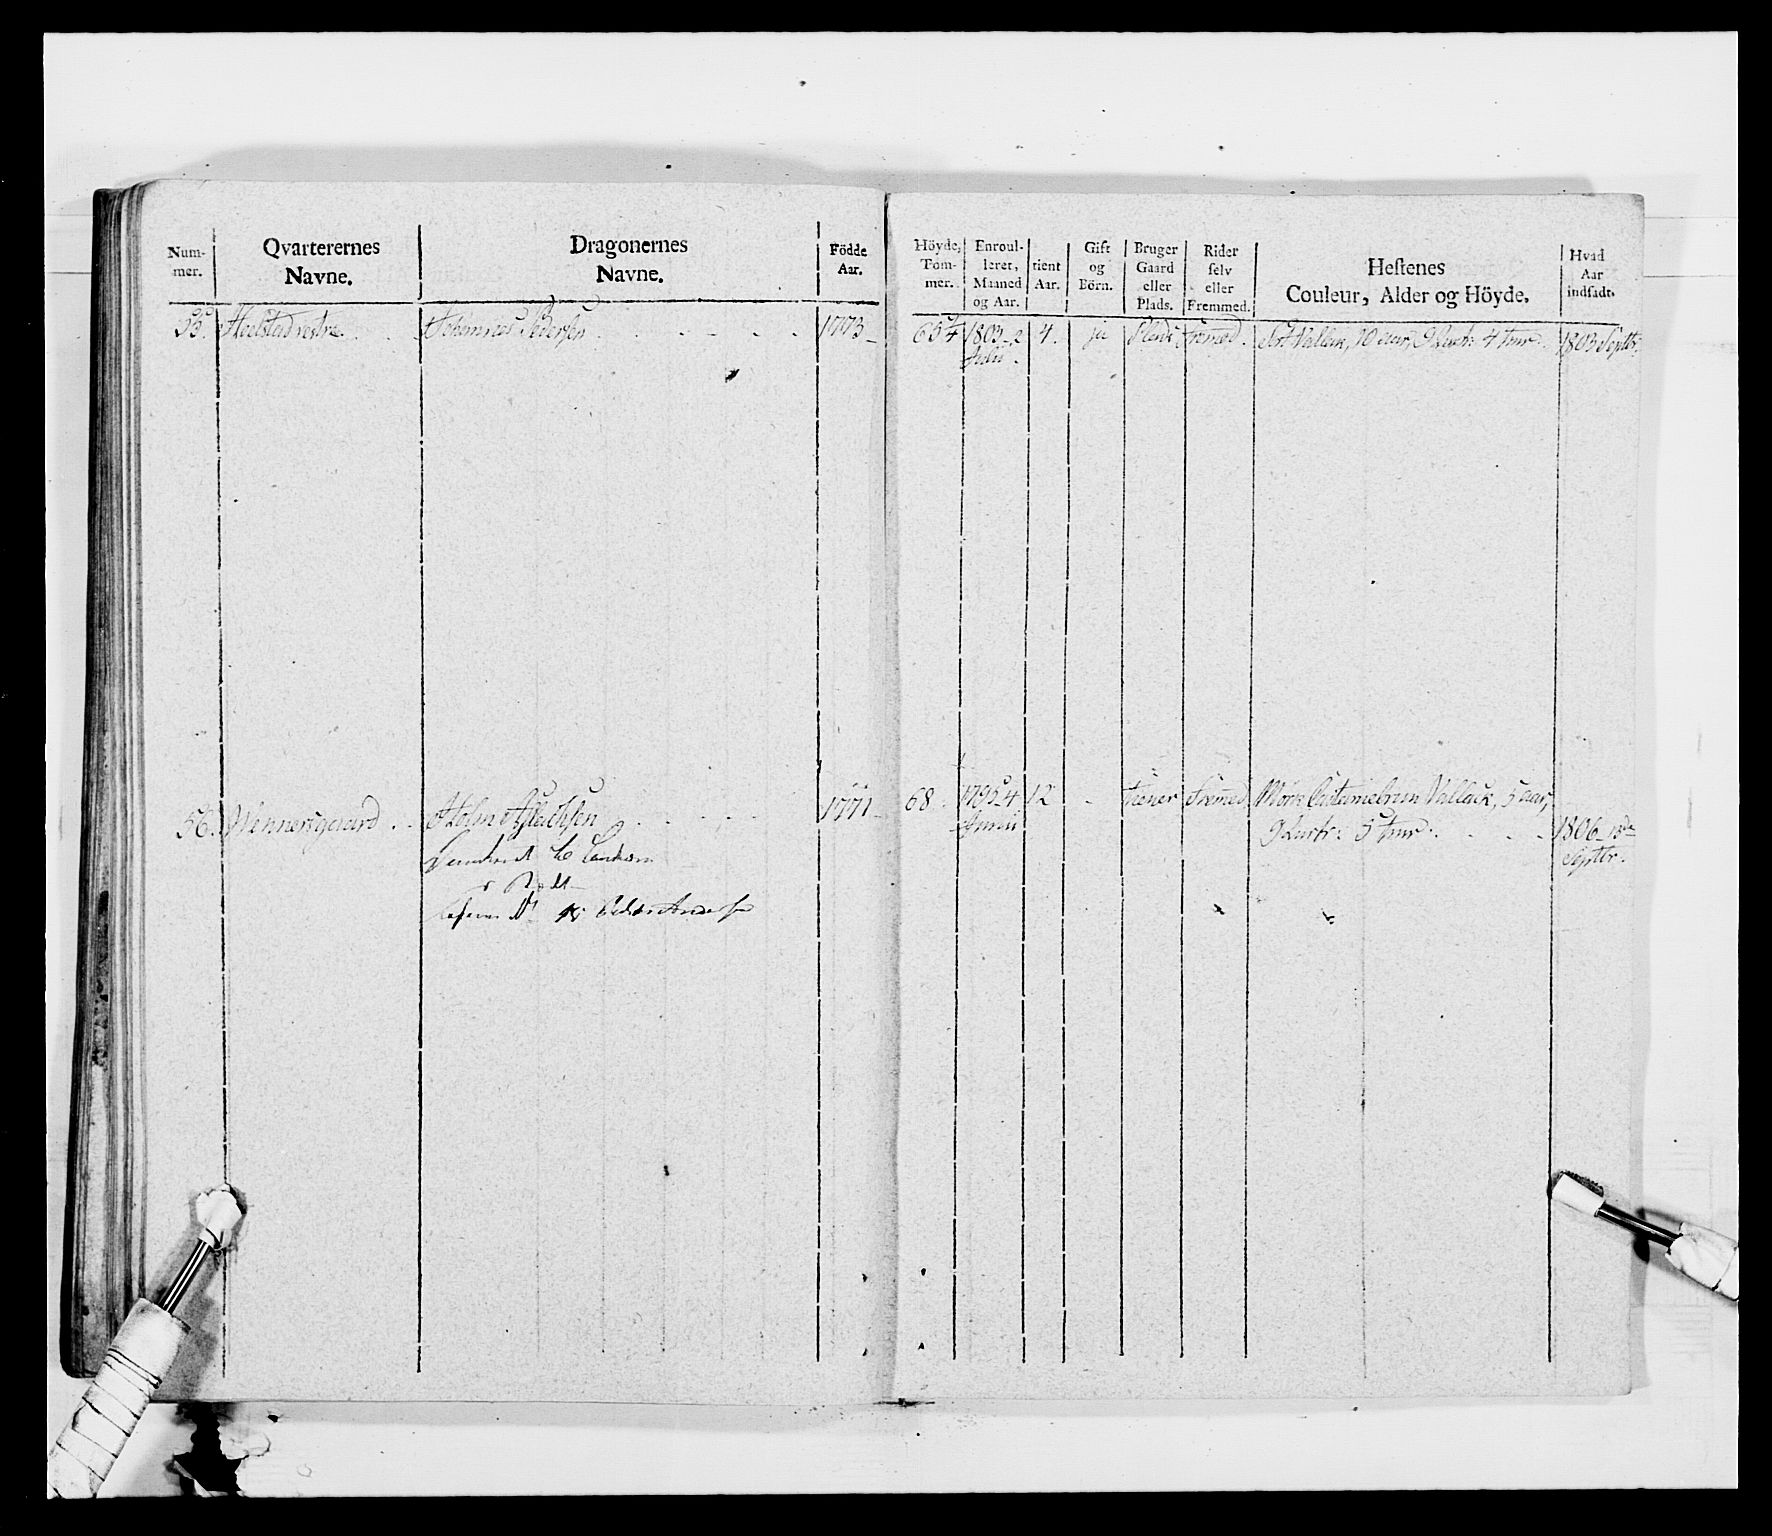 Num-
mer.
Qvarterernes
Navne.
Dragonernes
Navne.
Födde
Aar.
Höyde,
Tom-
mer.
Enroul-
leret,
Maaned
og Aar.
tient
Aar.
Gift
og
Börn.
Bruger
Gaard
eller
Plads.
Rider
selv
eller
Fremmed.
Hestenes
Couleur, Alder og Höyde.
Hvad
Aar
indsadt.
55. Heelstad vestre Johannes Pedersen 1773 65¼ 1803 2 4. ja Fremed. Sort Vallak, 10 aar, 9 Qvart: 4 tom: 1803 Septbr.
Julii.
56. Wennersgaard Holm Aslachsen 1771 68 1795 4 12 tiener Fremed Mörk Castaniebrun Vallack, 5 aar,
Junii 9 Qvartr: 5 tom: 1806
Septbr.